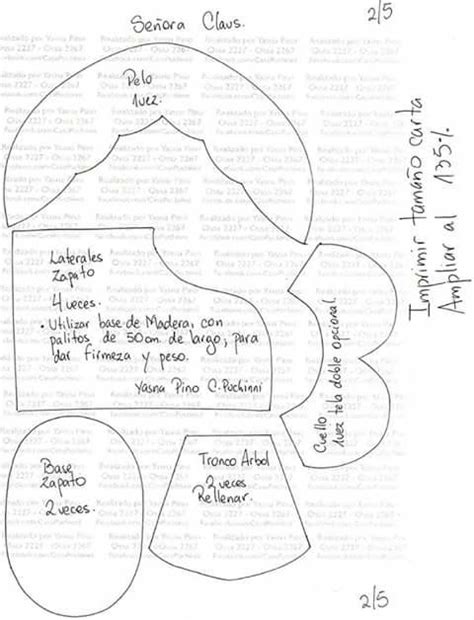 Señora Claus.
2/5
Pelo
1vez.
Imprimir tamaño carta
Ampliar al 135%
Laterales
Zapato
4 veces.
• Utilizar base de Madera, con
palitos de 50cm de largo, para
dar firmeza y peso.
Yasna Pino C. Puchinni
Cuello
1vez tela doble opcional.
Base
Zapato
2 veces.
Tronco Arbol
2 veces
Rellenar.
2/5